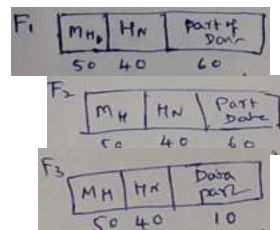 F1 MH HN Part of Data
50 40 60
F2 MH HN Part Data
50 40 60
F3 MH HN Data part
50 40 10